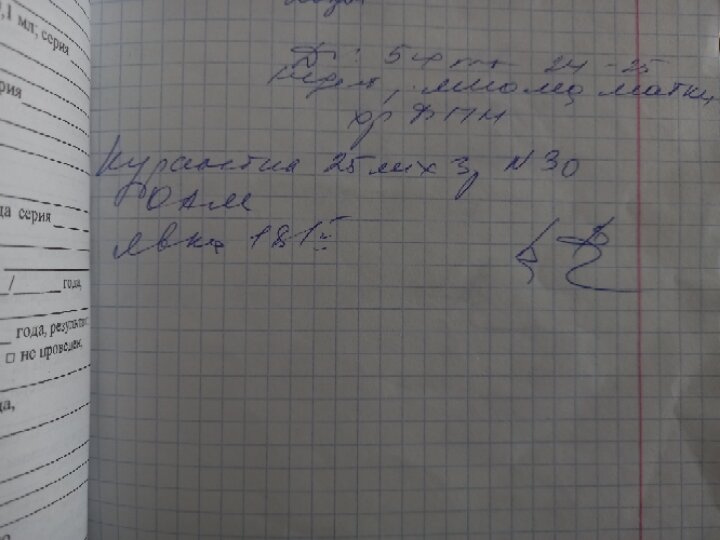 0,1 мл; серия
рия
да серия
/ года,
года, результат:
□ не проведен,
да,
Д: 5 24-25
недель, миома матки,
хр ФПН
Курантил 25 мг х 3 р N 30
ОАМ
Явка 18.15